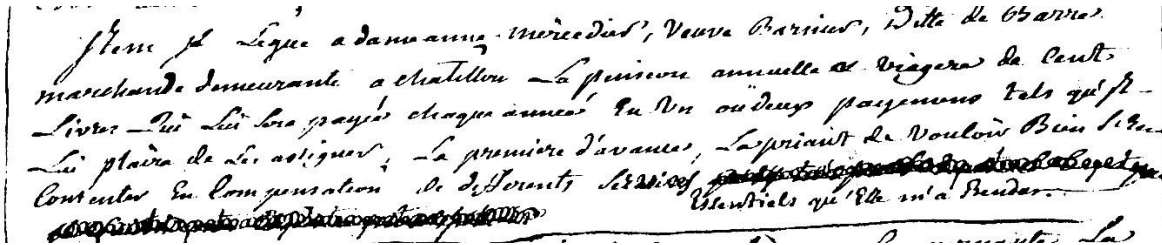 Item je Legue a dame anne mercedier, Veuve Barnier, Ditte de Barre
marchande demeurante a chatillon La pension annuelle et viagere de Cent
Livres Qui Lui Sera payée chaque année En Un ou deux payemens tels qu'il
Lui plaira de Les assigner, La premiere d'avance, La priant de Vouloir Bien S'en
Contenter En Compensation de differents Services
Essentiels qu'Elle m'a Rendus.